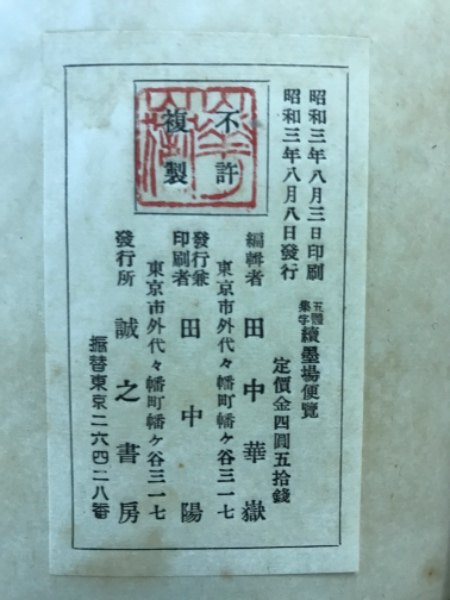 昭和三年八月三日印刷
昭和三年八月八日發行
五體集字 續墨場便覽
定價金四圓五拾錢
不許
複製
編輯者 田中華嶽
東京市外代々幡町幡ヶ谷三一七
發行兼印刷者 田中陽
東京市外代々幡町幡ヶ谷三一七
發行所 誠之書房
振替東京二六四二八番